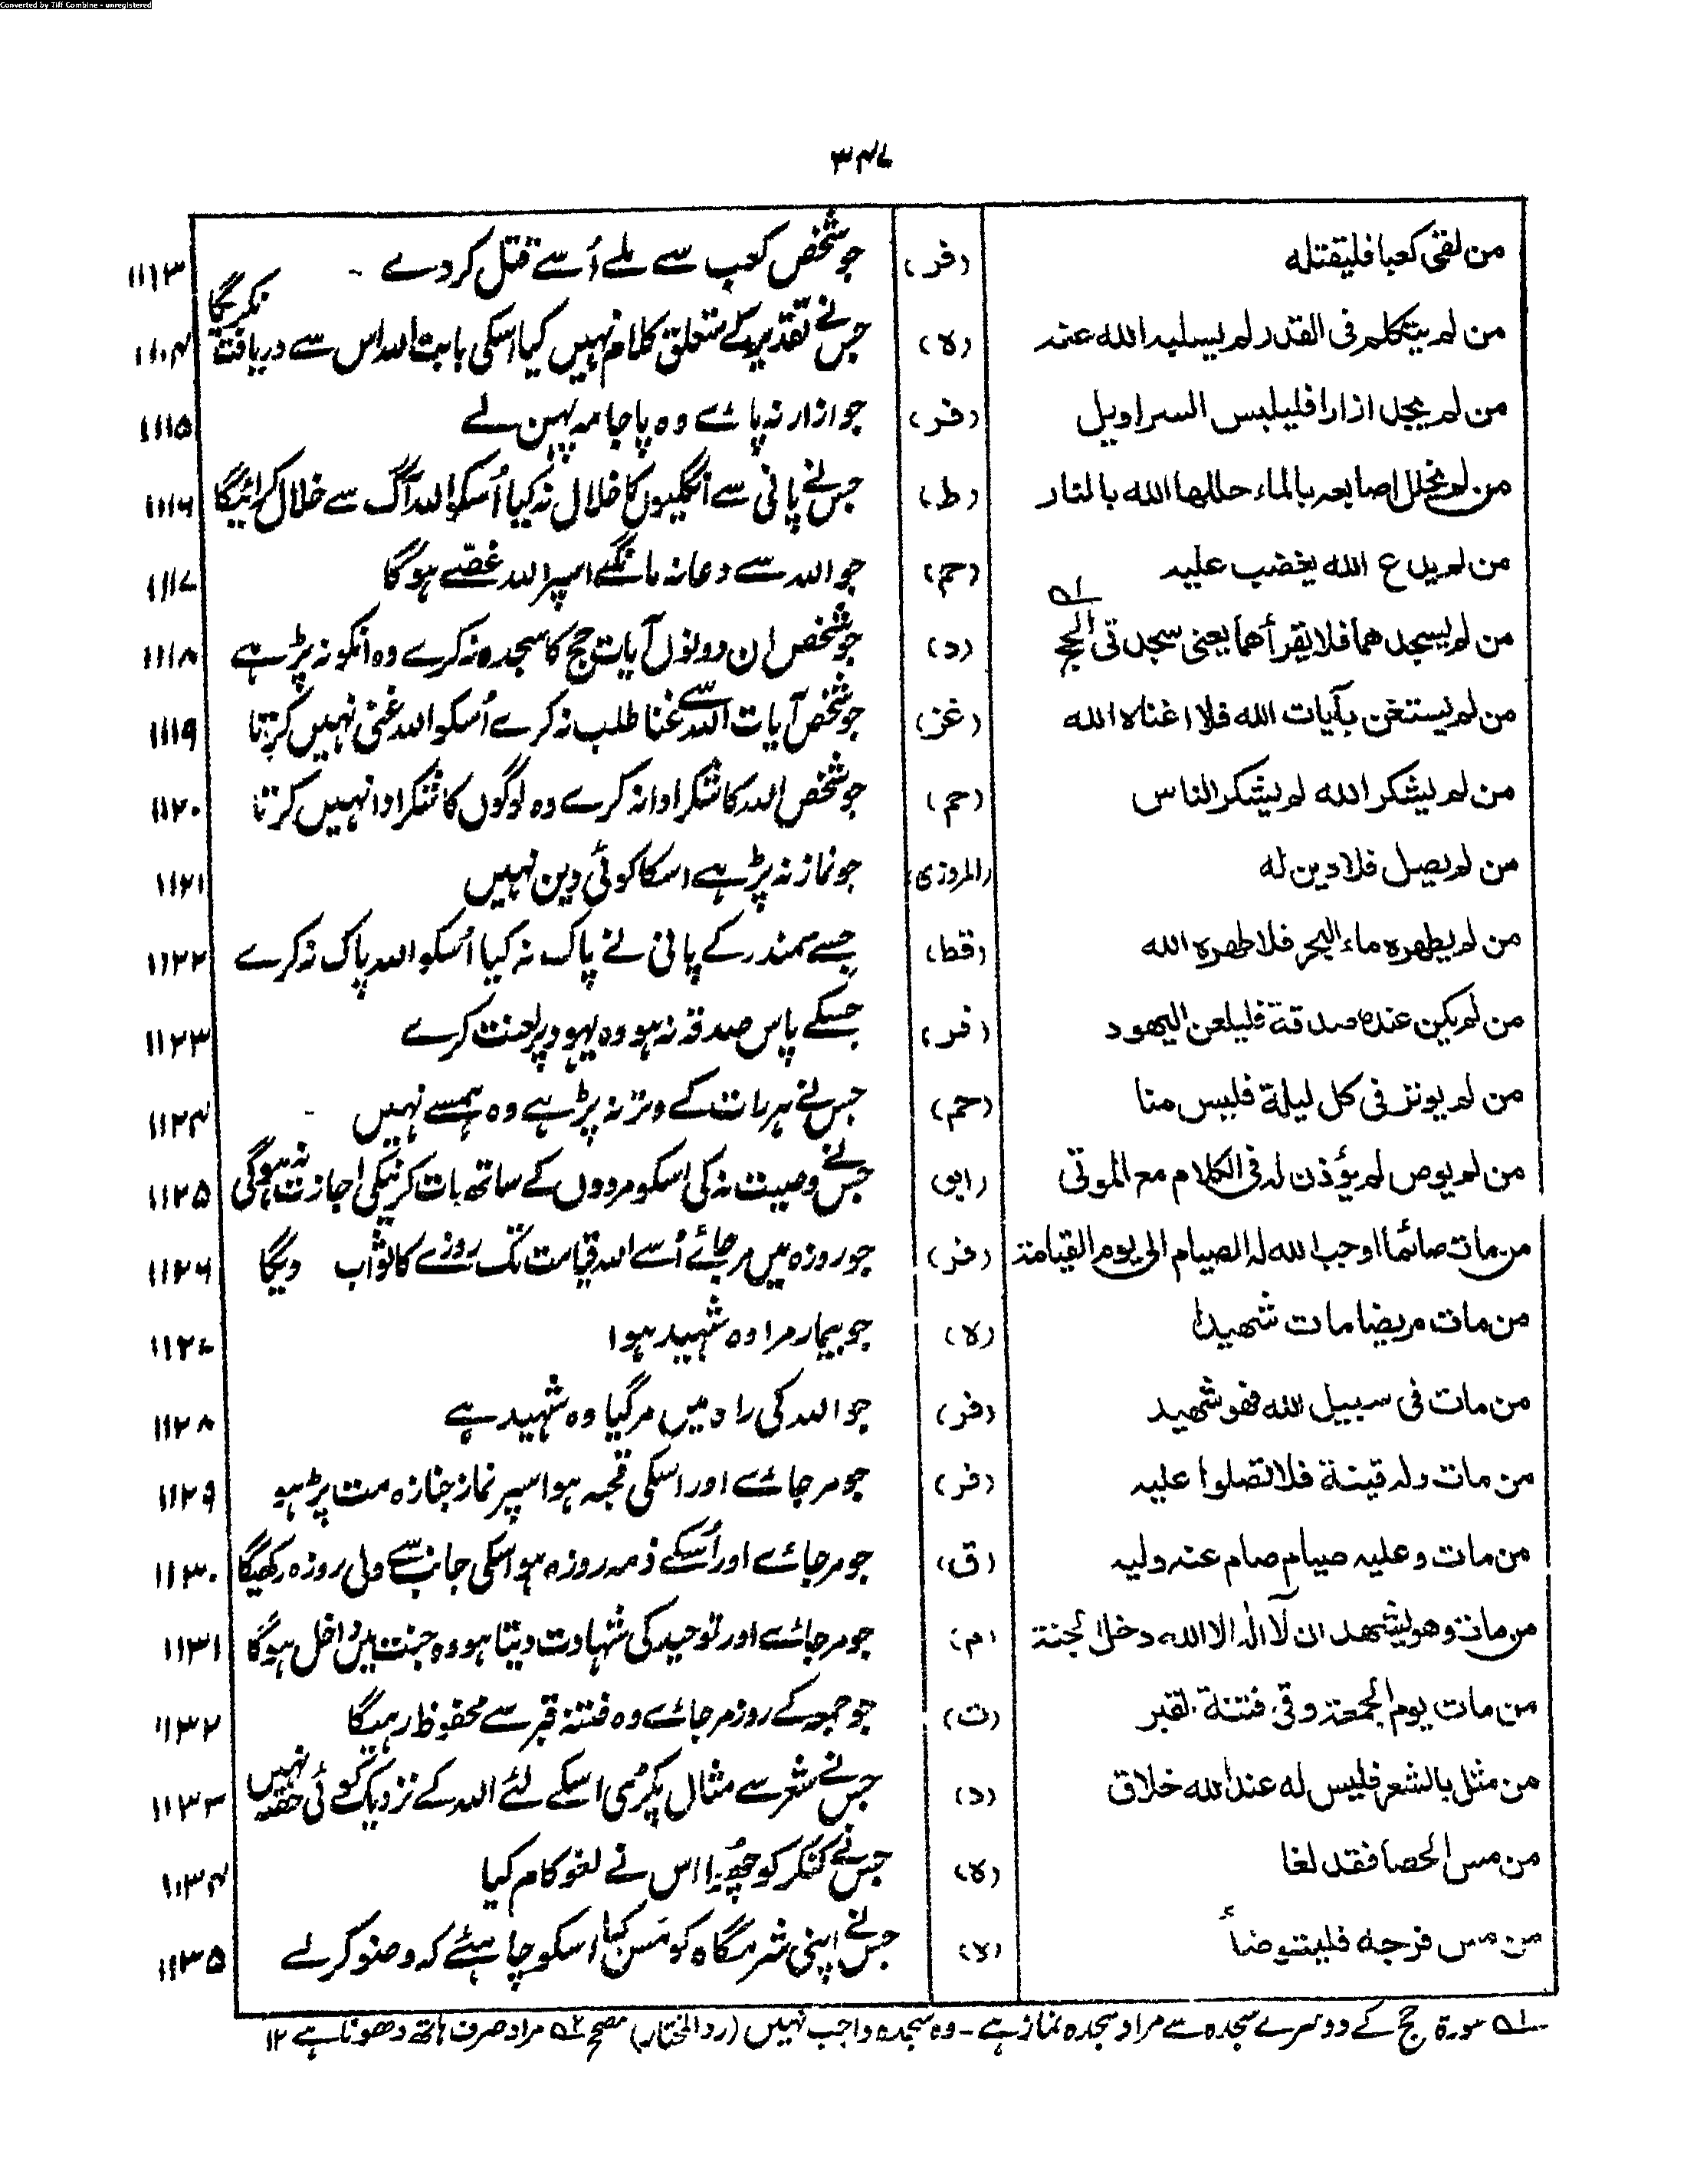 Converted by Tiff Combine - unregistered
۳۴۷
من لقی کعبا فلیقتله (فر) جو شخص کعب سے ملے اُسے قتل کر دے - ۱۱۱۳
من لم یتکلم فی القدر لم یسلیه الله عنه (لا) جس نے تقدیر کے متعلق کلام نہیں کیا اسکی بابت اللہ اس سے دریافت نکریگا ۱۱۰۴
من لم یجد ازارا فلیلبس السراویل (فر) جو ازار نہ پائے وہ پاجامہ پہن لے ۱۱۱۵
من لم یخلل اصابعه بالماء خللها الله بالنار (ط) جس نے پانی سے انگلیوں کا خلال نہ کیا اُسکو اللہ آگ سے خلال کرائیگا ۱۱۱۶
من لم یدع الله یغضب علیه (حم) جو اللہ سے دعا نہ مانگے اسپر اللہ غصّے ہوگا ۱۱۱۷
من لم یسجد هما فلا یقرأهما یعنی سجدتی الحج ؎۱ (د) جو شخص ان دونوں آیات حج کا سجدہ نہ کرے وہ انکو نہ پڑہے ۱۱۱۸
من لم یستغن بآیات الله فلا اغناه الله (غز) جو شخص آیات اللہ سے غنا طلب نہ کرے اُسکو اللہ غنی نہیں کرتا ۱۱۱۹
من لم یشکر الله لم یشکر الناس (حم) جو شخص اللہ کا شکر ادا نہ کرے وہ لوگوں کا شکر ادا نہیں کرتا ۱۱۲۰
من لم یصل فلا دین له (المروزی) جو نماز نہ پڑہے اسکا کوئی دین نہیں ۱۱۲۱
من لم یطهره ماء البحر فلا طهره الله (قط) جسے سمندر کے پانی نے پاک نہ کیا اُسکو اللہ پاک نہ کرے ۱۱۲۲
من لم یکن عنده صدقة فلیلعن الیهود (فر) جسکے پاس صدقہ نہ ہو وہ یہود پر لعنت کرے ۱۱۲۳
من لم یوتر فی کل لیلة فلیس منا (حم) جس نے ہر رات کے وتر نہ پڑہے وہ ہمسے نہیں - ۱۱۲۴
من لم یوص لم یؤذن له فی الکلام مع الموتی (ابو) جس نے وصیت نہ کی اسکو مردوں کے ساتھ بات کرنیکی اجازت نہ ہوگی ۱۱۲۵
من مات صائما اوجب الله له الصیام الی یوم القیامة (فر) جو روزہ میں مر جائے اُسے اللہ قیامت تک روزے کا ثواب دیگا ۱۱۲۶
من مات مریضا مات شهیدا (لا) جو بیمار مرا وہ شہید ہوا ۱۱۲۷
من مات فی سبیل الله فهو شهید (فر) جو اللہ کی راہ میں مر گیا وہ شہید ہے ۱۱۲۸
من مات وله قینة فلا تصلوا علیه (فر) جو مر جائے اور اسکی قحبہ ہو اسپر نماز جنازہ مت پڑہو ۱۱۲۹
من مات وعلیه صیام صام عنه ولیه (ق) جو مر جائے اور اُسکے ذمہ روزہ ہو اسکی جانب سے ولی روزہ رکھیگا ۱۱۳۰
من مات وهو یشهد ان لا اله الا الله دخل الجنة (م) جو مر جائے اور توحید کی شہادت دیتا ہو وہ جنت میں داخل ہوگا ۱۱۳۱
من مات یوم الجمعة وقی فتنة القبر (ت) جو جمعہ کے روز مر جائے وہ فتنہ قبر سے محفوظ رہیگا ۱۱۳۲
من مثل بالشعر فلیس له عند الله خلاق (د) جس نے شعر سے مثال پکڑی اسکے لئے اللہ کے نزدیک کوئی حصہ نہیں ۱۱۳۳
من مس الحصا فقد لغا (لا) جس نے کنکر کو چھوا اس نے لغو کام کیا ۱۱۳۴
من مس فرجه فلیتوضأ (لا) جس نے اپنی شرمگاہ کو مَس کیا اسکو چاہئے کہ وضو کرلے ۱۱۳۵
؎۱ سورۃ حج کے دوسرے سجدہ سے مراد سجدہ نماز ہے - وہ سجدہ واجب نہیں (رد المختار) مصحح ؎۲ مراد صرف ہاتھ دھونا ہے ۱۲